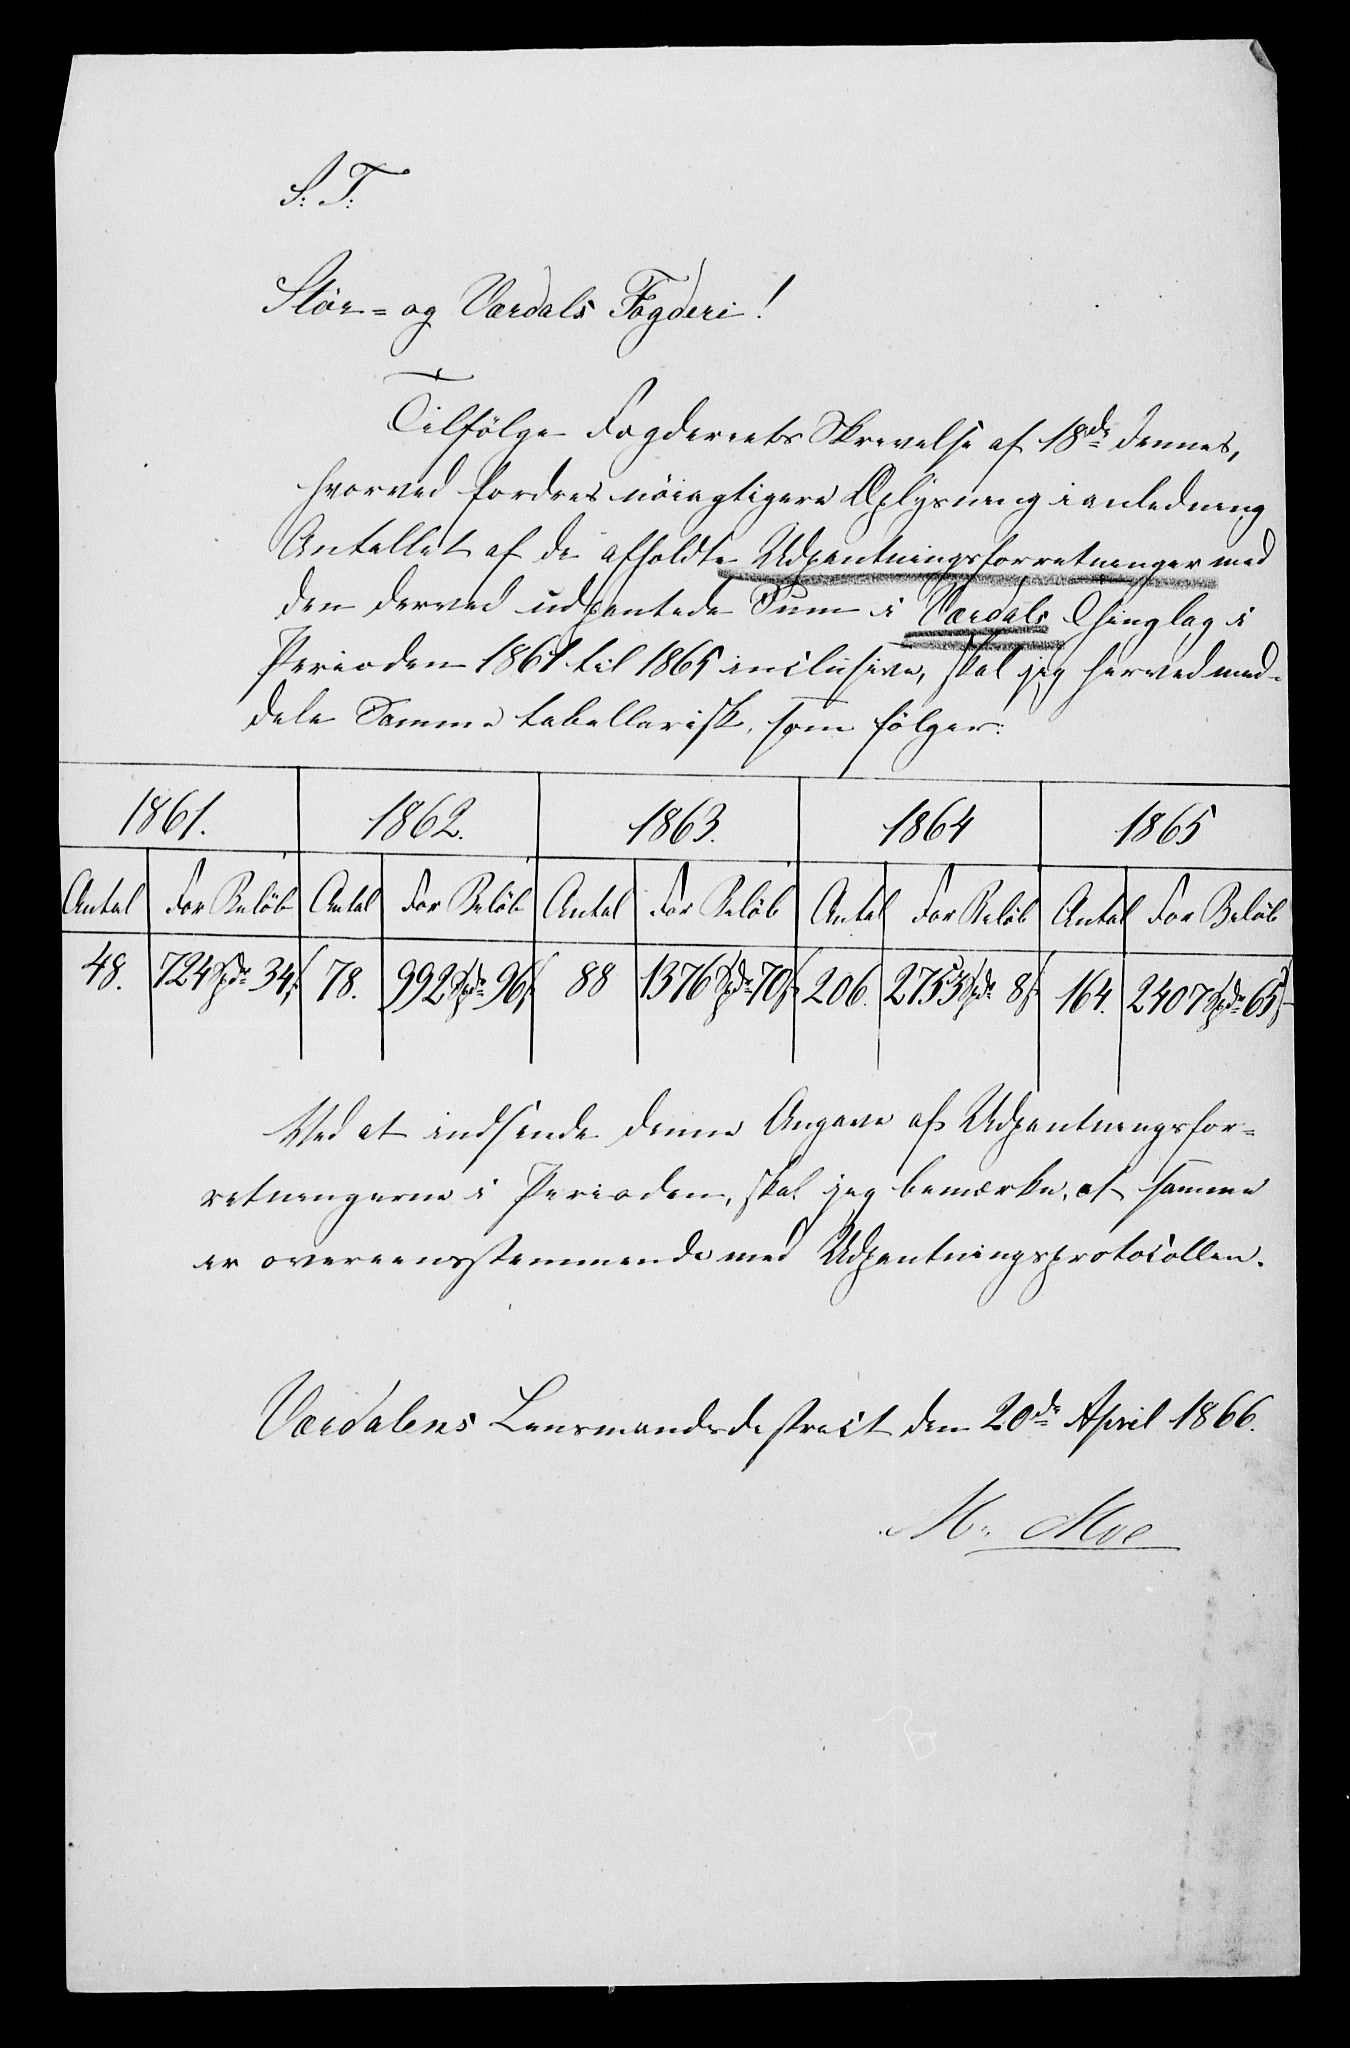 S: T:
Stör- og Værdals Fogderi!
Tilfölge Fogderiets Skrivelse af 18de dennes,
hvorved fordres nöiagtigere Oplysning i anledning
Antallet af de afholdte Udpantningsforretninger med
den derved udpantede Sum i Værdals Thinglag i
Perioden 1861 til 1865 inclusive, skal jeg herved med-
dele Samme tabellarisk, som fölger:
1861. 1862. 1863. 1864 1865
Antal For Belöb Antal For Belöb Antal For Belöb Antal For Belöb Antal For Belöb
48. 724 Spd. 34 ß 78. 992 Spd. 96 ß 88 1376 Spd. 70 ß 206. 2753 Spd. 8 ß 164. 2407 Spd. 65 ß
Ved at indsende denne Angave af Udpantningsfor-
retningerne i Perioden, skal jeg bemærke, at samme
er overeensstemmende med Udpantningsprotocollen.
Værdalens Lensmandsdistrict den 20de April 1866.
M. Moe